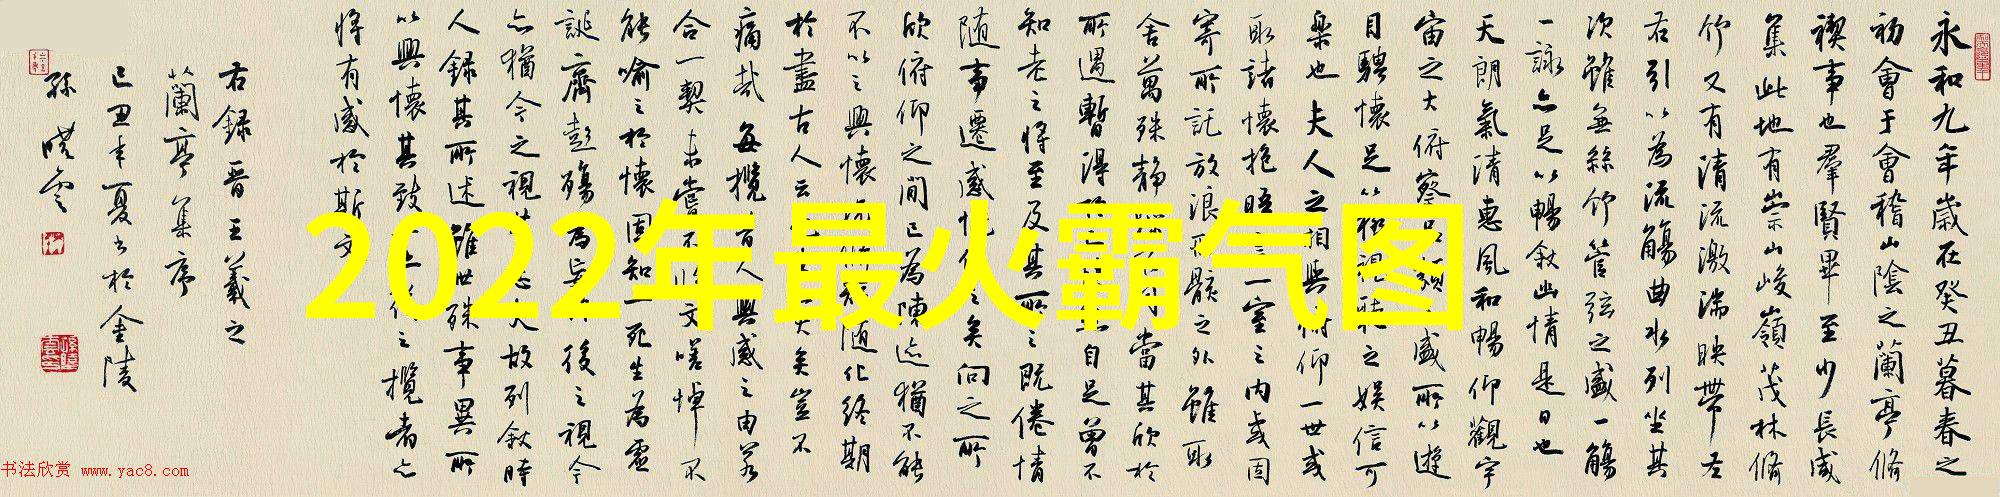 永和九年歲在癸丑暮春之
初會于會稽山陰之蘭亭脩
禊事也羣賢畢至少長咸
集此地有崇山峻嶺茂林脩
竹又有清流激湍映帶左
右引以為流觴曲水列坐其
次雖無絲竹管弦之盛一觴
一詠亦足以暢敘幽情是日也
天朗氣清惠風和暢仰觀宇
宙之大俯察品類之盛所以遊
目騁懷足以極視聽之娛信可
樂也夫人之相與俯仰一世或
取諸懷抱晤言一室之內或因
寄所託放浪形骸之外雖取
舍萬殊靜
當其欣於
所遇暫得
自足曾不
知老之將至及其所之既倦情
隨事遷感慨係之矣向之所
欣俯仰之間已為陳迹猶不能
不以之興懷
隨化終期
於盡古人云
大矣豈不
痛哉每攬
人興感之由若
合一契未嘗不
文嗟悼不
能喻之於懷固知一死生為虛
誕齊彭殤為妄
後之視今
亦猶今之視
故列敘時
人錄其所述雖世殊事異所
以興懷其致一也後之攬者亦
將有感於斯文
右錄晉王羲之
蘭亭集序
己丑年夏書於金陵
孫曉雲
2022年最火霸气图
书法欣赏 www.yac8.com